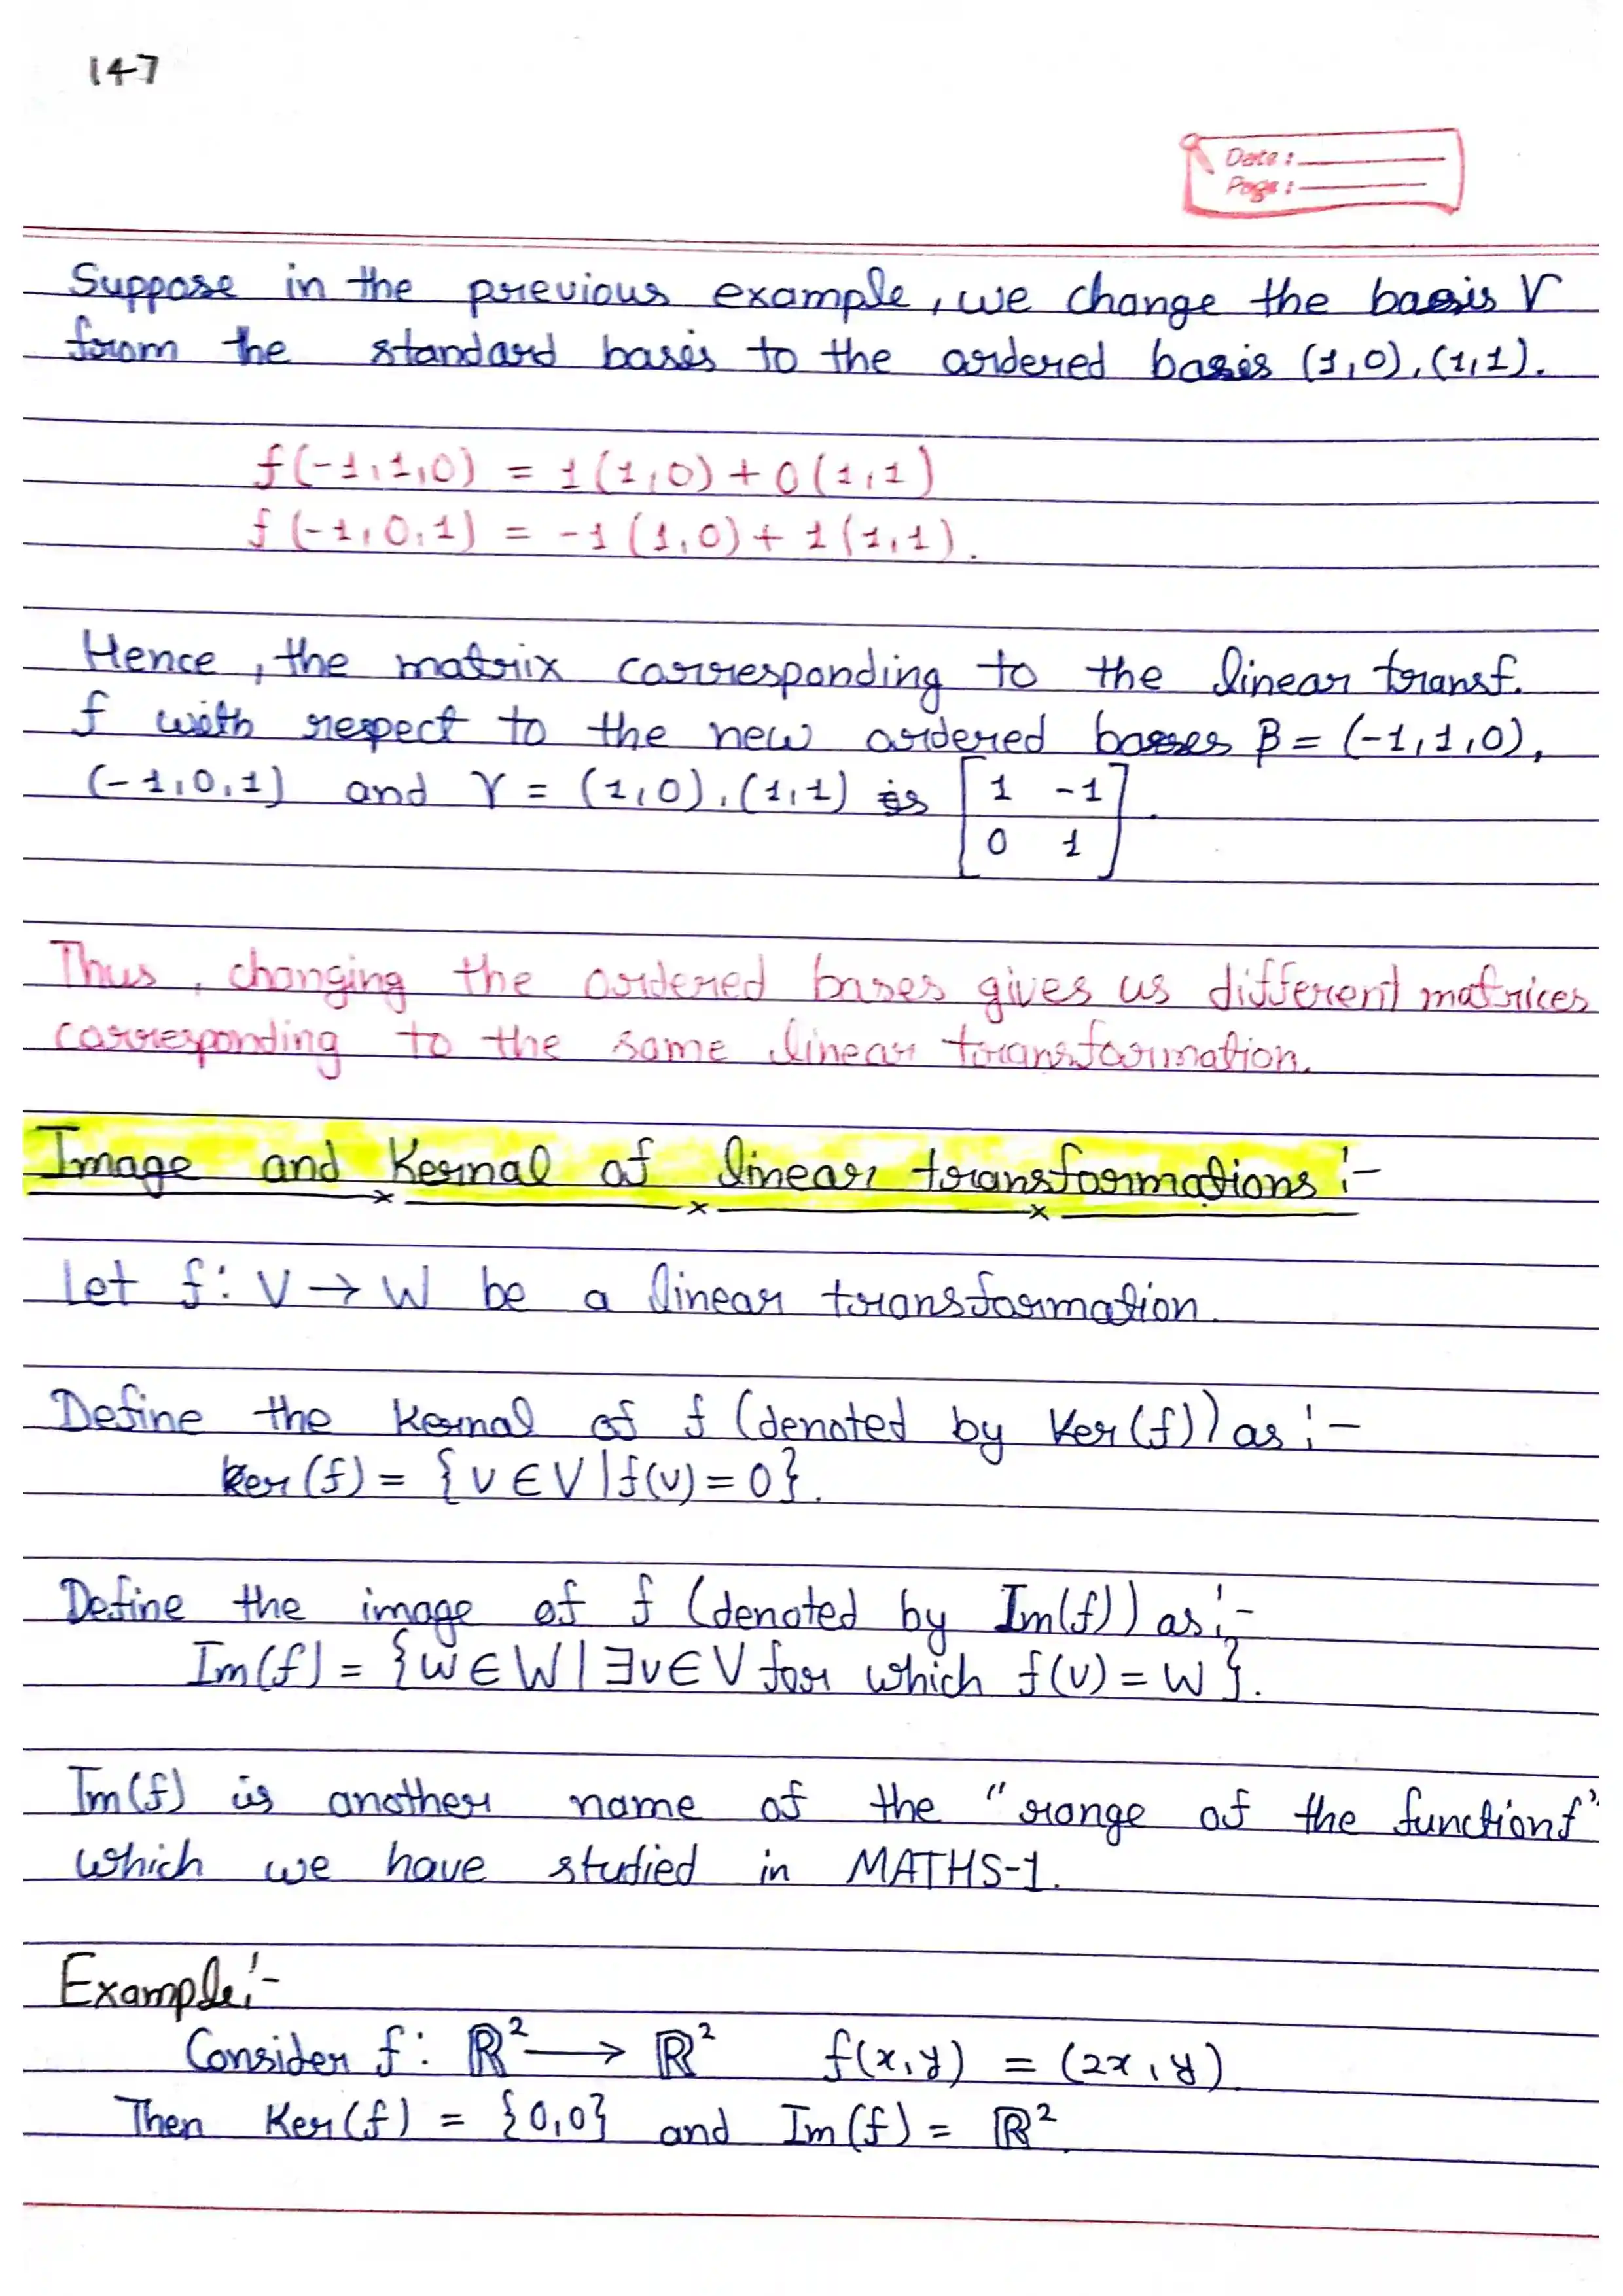 147
Date :
Page :
Suppose in the previous example, we change the basis γ
from the standard basis to the ordered basis (1,0), (1,1).
f(-1,1,0) = 1(1,0) + 0(1,1)
f(-1,0,1) = -1(1,0) + 1(1,1).
Hence, the matrix corresponding to the linear transf.
f with respect to the new ordered bases β = (-1,1,0),
(-1,0,1) and γ = (1,0), (1,1) is [1 -1
0 1].
Thus, changing the ordered bases gives us different matrices
corresponding to the same linear transformation.
Image and Kernal of linear transformations :-
Let f: V → W be a linear transformation.
Define the Kernal of f (denoted by Ker(f)) as :-
Ker(f) = {v ∈ V | f(v) = 0}.
Define the image of f (denoted by Im(f)) as :-
Im(f) = {w ∈ W | ∃v ∈ V for which f(v) = w}.
Im(f) is another name of the "range of the function f"
which we have studied in MATHS-1.
Example :-
Consider f: ℝ² → ℝ² f(x,y) = (2x,y).
Then Ker(f) = {0,0} and Im(f) = ℝ².